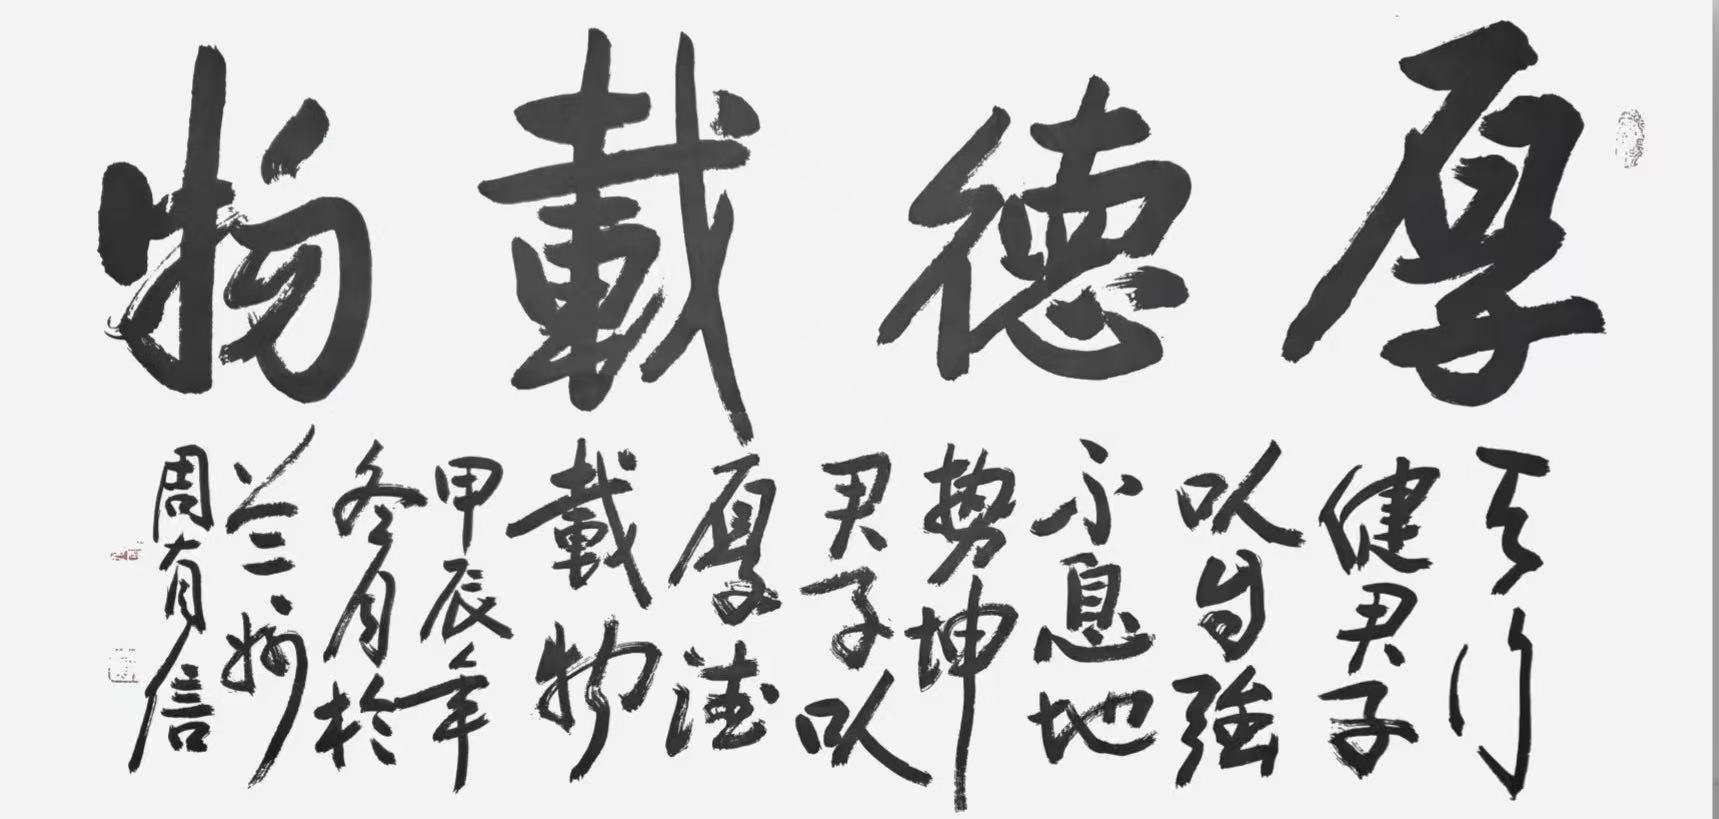 厚德載物
天行
健君子
以自強
不息地
勢坤
君子以
厚德
載物
甲辰年
冬月於
兰州
周有信